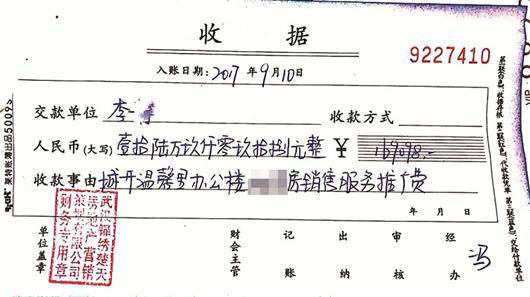 收据
9227410
入账日期：2017年9月10日
交款单位 李 收款方式
人民币(大写) 壹拾陆万玖仟零玖拾捌元整 ¥ 169098.-
收款事由 城开温馨里办公楼 房销售服务推广费
年 月 日
武汉锦绣楚天
房地产营销
策划有限公司
财务专用章
单位盖章
财会主管 记账 出纳 审核 经办 冯
莱特账簿出品5009